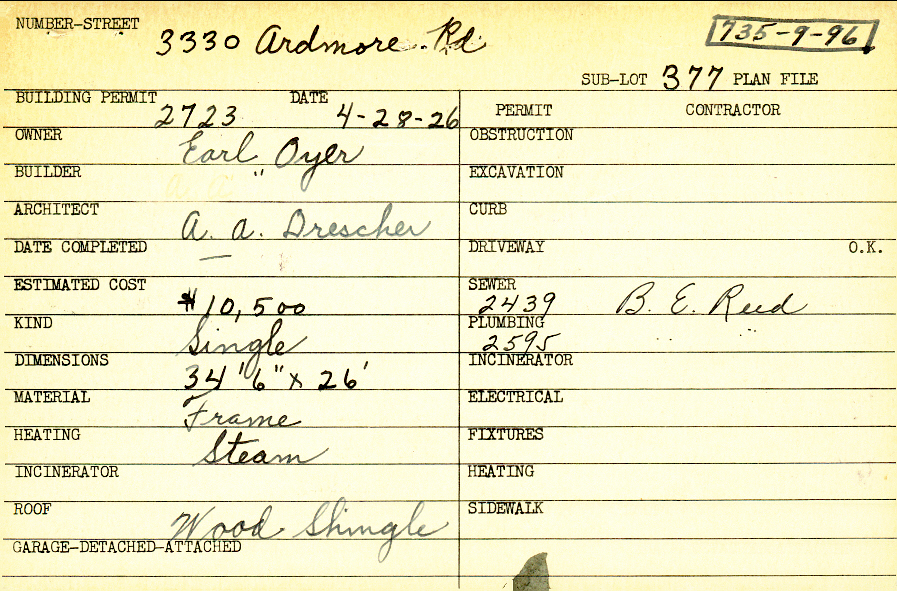 NUMBER-STREET 3330 Ardmore Rd 735-9-96
SUB-LOT 377 PLAN FILE
BUILDING PERMIT 2723 DATE 4-28-26 PERMIT CONTRACTOR
OWNER Earl Oyer OBSTRUCTION
BUILDER " EXCAVATION
ARCHITECT A. A. Drescher CURB
DATE COMPLETED — DRIVEWAY O.K.
ESTIMATED COST $10,500 SEWER 2439 B. E. Reed
KIND Single PLUMBING 2595 " "
DIMENSIONS 34'6" x 26' INCINERATOR
MATERIAL Frame ELECTRICAL
HEATING Steam FIXTURES
INCINERATOR HEATING
ROOF Wood Shingle SIDEWALK
GARAGE-DETACHED-ATTACHED